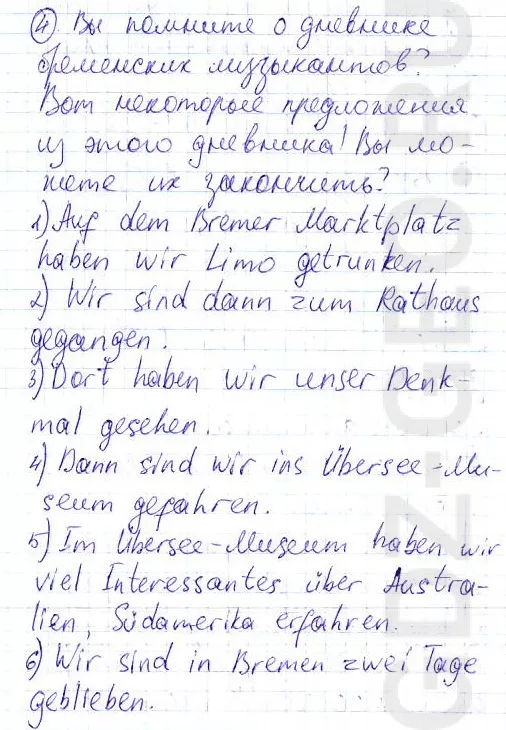 ④. Вы помните о дневнике
бременских музыкантов?
Вот некоторые предложения
из этого дневника! Вы мо-
жете их закончить?
1) Auf dem Bremer Marktplatz
haben wir Limo getrunken.
2) Wir sind dann zum Rathaus
gegangen.
3) Dort haben wir unser Denk-
mal gesehen.
4) Dann sind wir ins Übersee-Mu-
seum gefahren.
5) Im Übersee-Museum haben wir
viel Interessantes über Austra-
lien, Südamerika erfahren.
6) Wir sind in Bremen zwei Tage
geblieben.
GDZ-GEO.RU